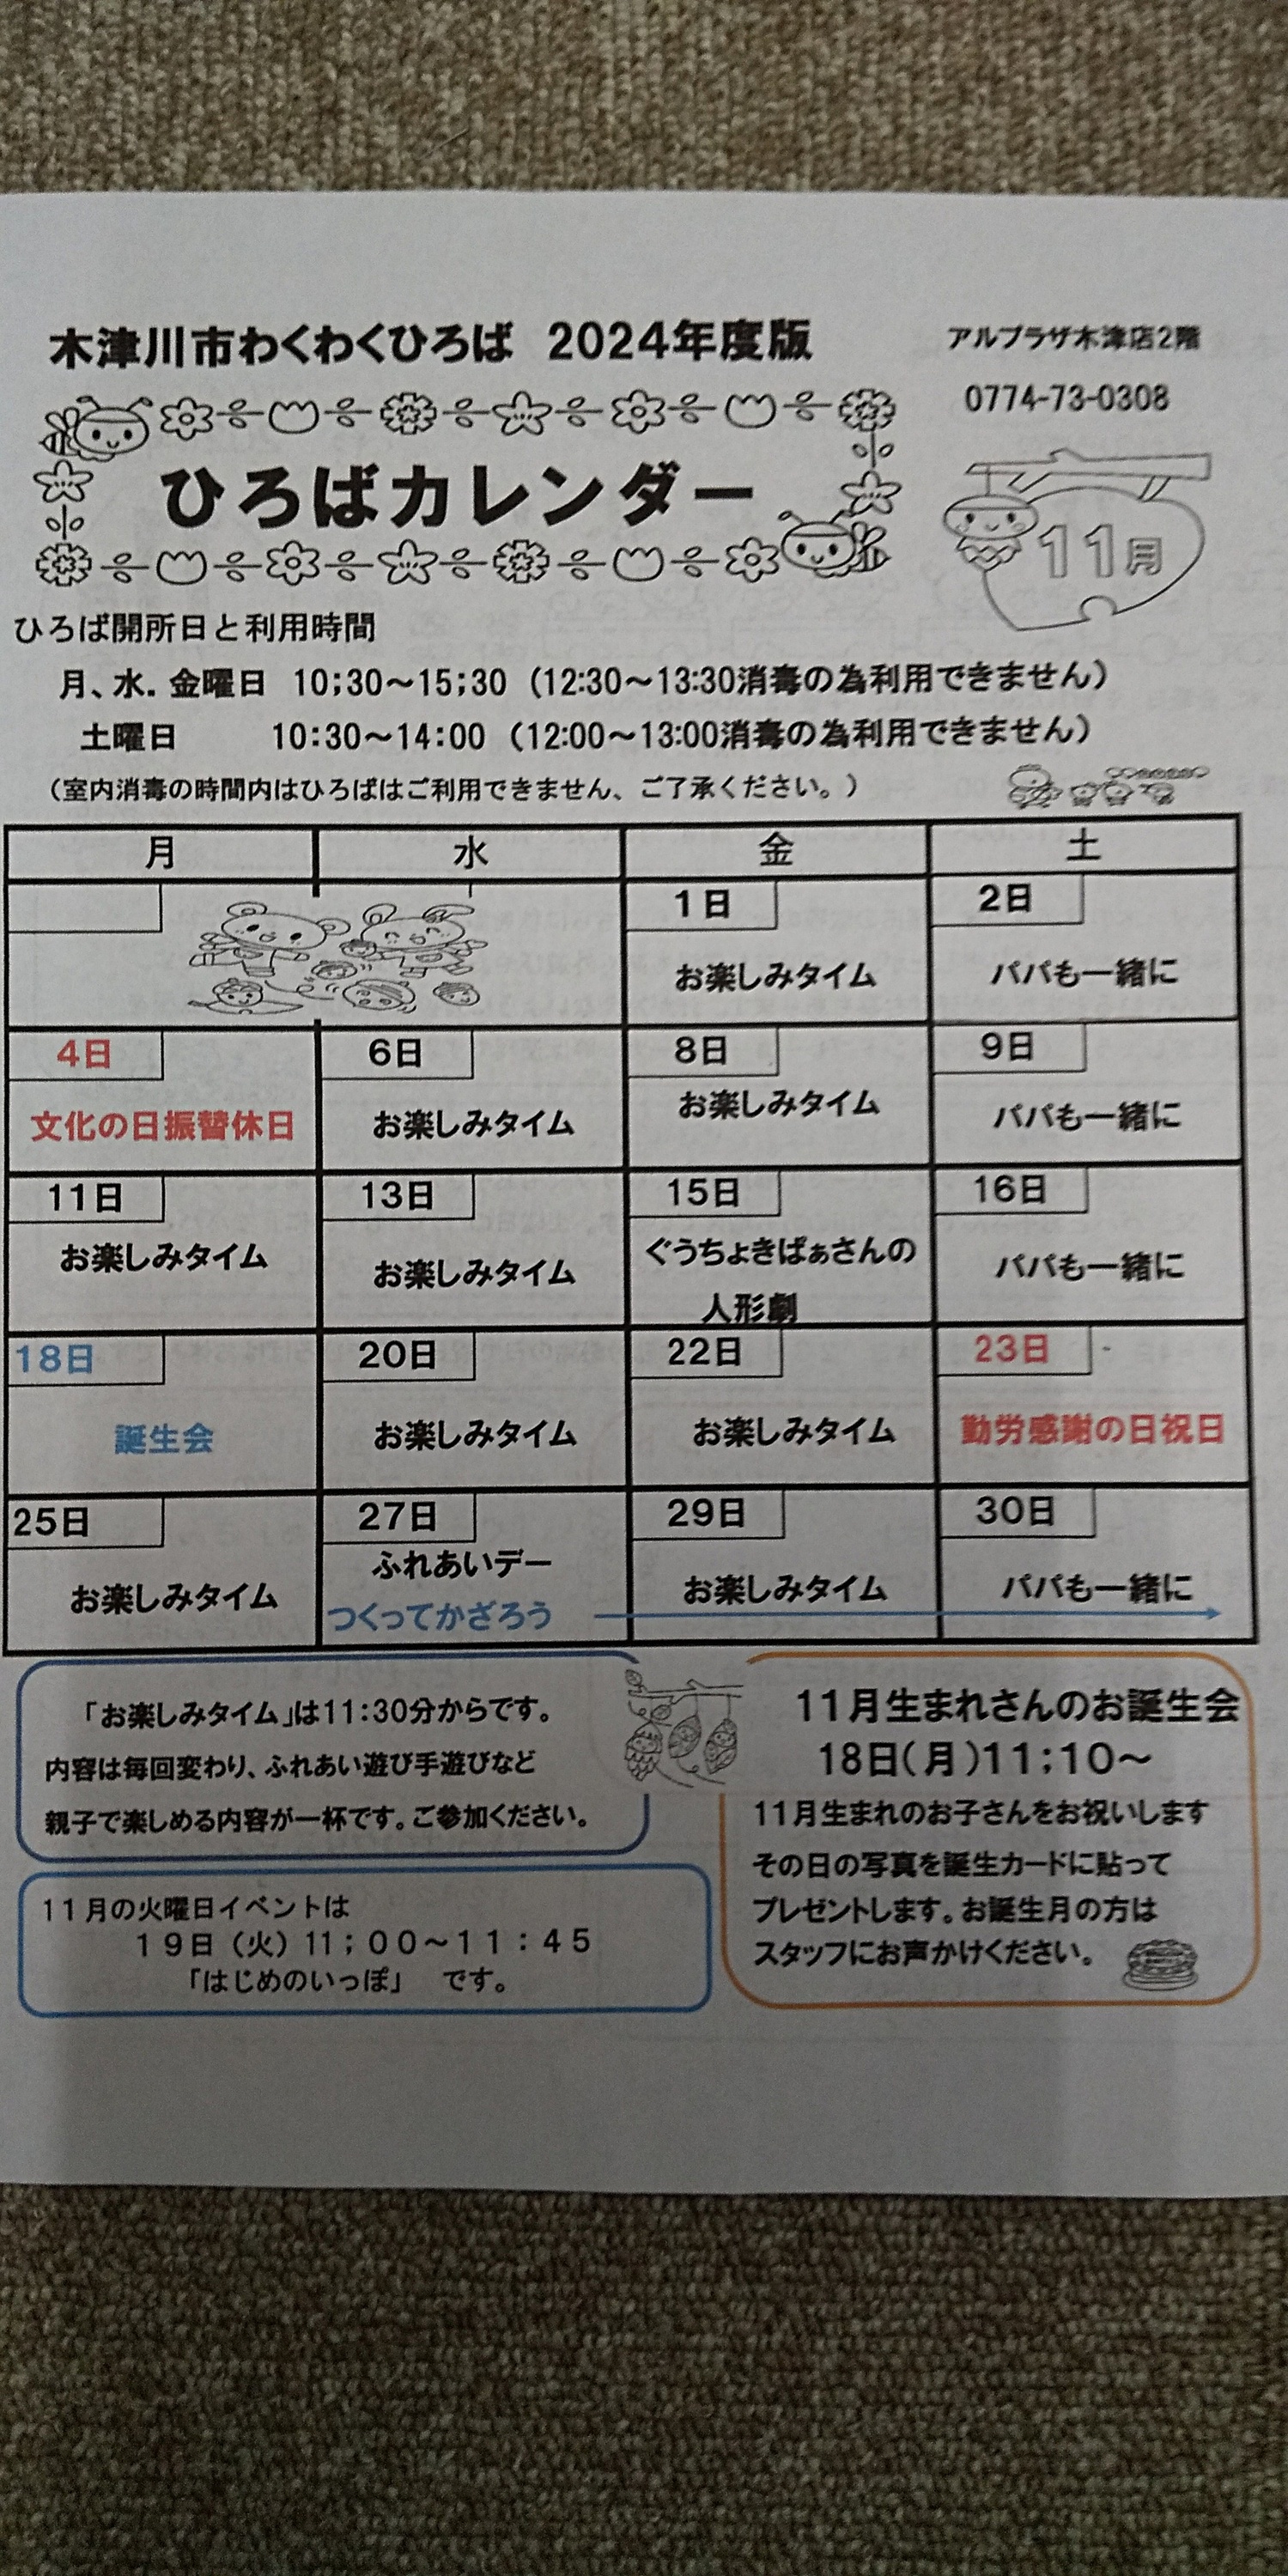 木津川市わくわくひろば 2024年度版
アルプラザ木津店2階
0774-73-0308
ひろばカレンダー
11月
ひろば開所日と利用時間
月、水．金曜日 10;30～15;30 (12:30～13:30消毒の為利用できません)
土曜日 10:30～14:00 (12:00～13:00消毒の為利用できません)
(室内消毒の時間内はひろばはご利用できません、ご了承ください。)
月 水 金 土
1日 2日
お楽しみタイム パパも一緒に
4日 6日 8日 9日
文化の日振替休日 お楽しみタイム お楽しみタイム パパも一緒に
11日 13日 15日 16日
お楽しみタイム お楽しみタイム ぐうちょきぱぁさんの パパも一緒に
人形劇
18日 20日 22日 23日
誕生会 お楽しみタイム お楽しみタイム 勤労感謝の日祝日
25日 27日 29日 30日
ふれあいデー
お楽しみタイム つくってかざろう お楽しみタイム パパも一緒に
「お楽しみタイム」は11:30分からです。
内容は毎回変わり、ふれあい遊び手遊びなど
親子で楽しめる内容が一杯です。ご参加ください。
11月の火曜日イベントは
19日（火）11；00～11：45
「はじめのいっぽ」 です。
11月生まれさんのお誕生会
18日(月)11;10～
11月生まれのお子さんをお祝いします
その日の写真を誕生カードに貼って
プレゼントします。お誕生月の方は
スタッフにお声かけください。